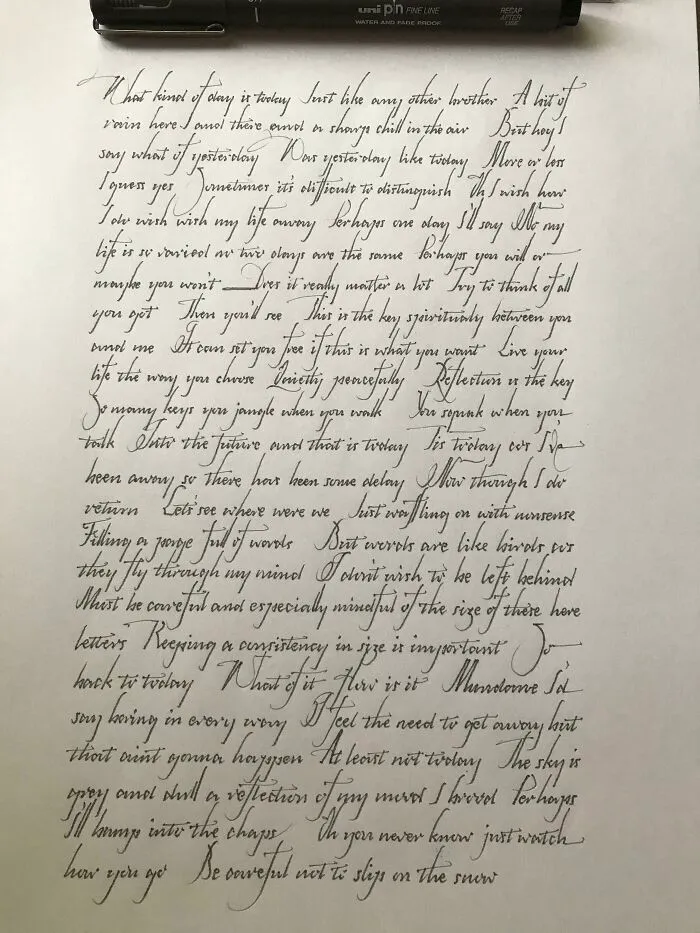 uni pin FINE LINE
WATER AND FADE PROOF
RECAP
AFTER
USE
What kind of day is today Just like any other brother A bit of
rain here and there and a sharp chill in the air But hey I
say what of yesterday Was yesterday like today More or less
I guess yes Sometimes it's difficult to distinguish Oh I wish how
I do wish wish my life away Perhaps one day I'll say No my
life is so varied no two days are the same Perhaps you will or
maybe you won't Does it really matter a lot Try to think of all
you got Then you'll see This is the key spiritualy between you
and me It can set you free if this is what you want Live your
life the way you choose Quietly peacefully Reflection is the key
So many keys you jangle when you walk You squak when you
talk Into the future and that is today Tis today cos I've
been away so there has been some delay Now though I do
return Let's see where were we Just waffling on with nonsense
Filling a page full of words But words are like birds cos
they fly through my mind I don't wish to be left behind
Must be careful and especially mindful of the size of these here
letters Keeping a consistency in size is important So
back to today What of it How is it Mundane I'd
say boring in every way I feel the need to get away but
that aint gonna happen At least not today The sky is
grey and dull a reflection of my mood I brood Perhaps
I'll bump into the chaps Oh you never know just watch
how you go Be careful not to slip on the snow